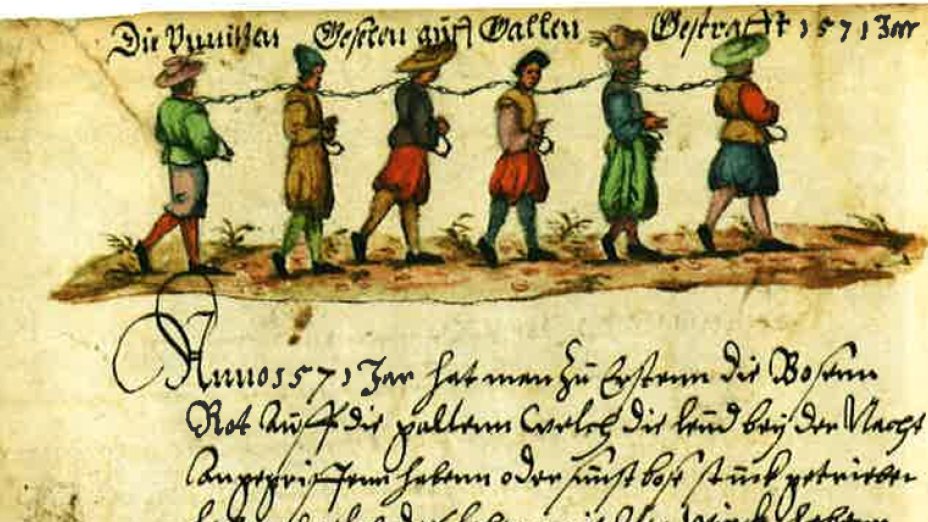 Die Unnitzen Geselen auff Gallen Gestrafft 1571 Jar
Anno 1571 Jar hat man zu Erstenn die Bosenn
Rot Auff die gallenn welch die leud bey der Nacht
Angegriffenn habenn oder sunst bose stuck getrieben